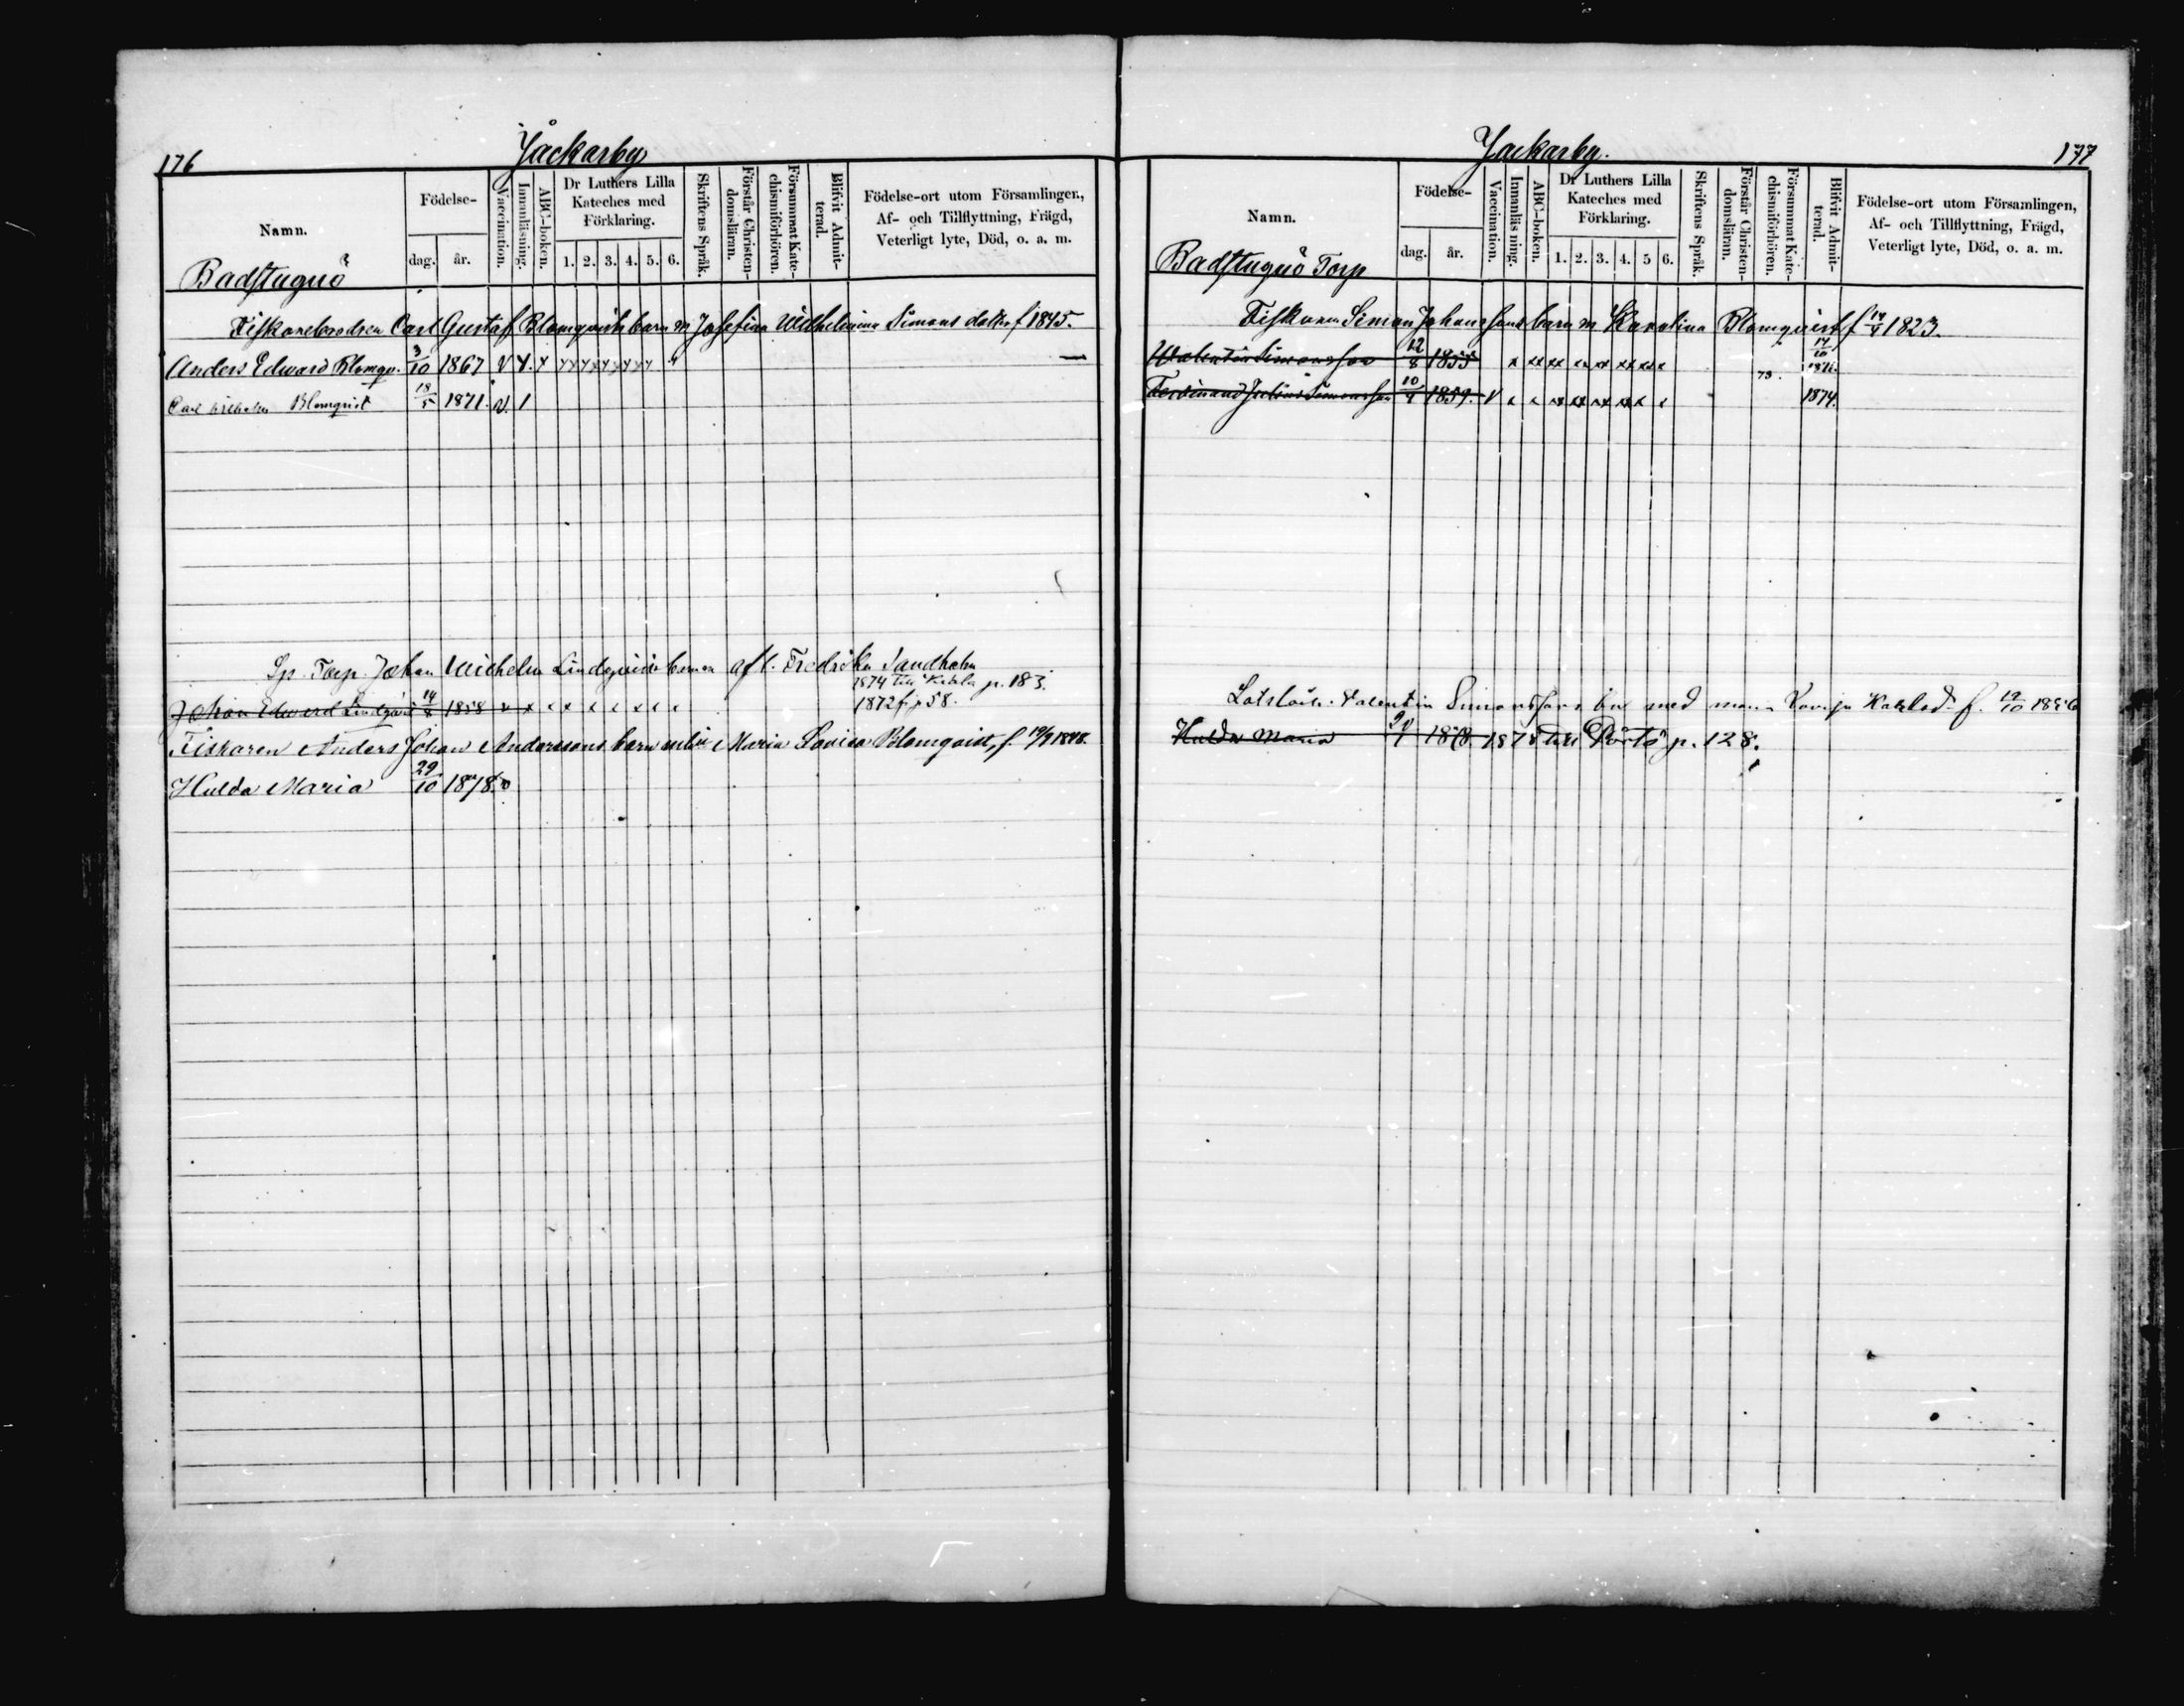 176
Jackarby
Namn.
Födelse-
dag.
år.
Vaccination.
Innanläsning.
ABC-boken.
Dr Luthers Lilla
Kateches med
Förklaring.
1. 2. 3. 4. 5. 6.
Skriftens Språk.
Förstår Christen-
domsläran.
Försummat Kate-
chismiförhören.
Blifvit Admit-
terad.
Födelse-ort utom Församlingen,
Af- och Tillflyttning, Frägd,
Veterligt lyte, Död, o. a. m.
Badstuguö
Carl Gustaf Blomqvists barn m Josefina Wilhelmina Simons dotter f 1845.
Anders Edward Blomqv. 3/10 1867 v
Carl Wilhelm Blomqvist 18/5 1871. v. 1
Torp. Johan Wilhelm Lindqvists barn m afl. Fredrika Sandholm
1874 till p. 183.
Johan Edward Lindqvist 14/8 1858 v x x x x x x x x 1872 fr p 58.
Fiskaren Anders Johan Anderssons barn m Maria Lovisa Blomqvist, f. 19/9 1848.
Hulda Maria 29/10 1878. v
177
Jackarby.
Namn.
Födelse-
dag.
år.
Vaccination.
Innanläs ning.
ABC-boken.
Dr Luthers Lilla
Kateches med
Förklaring.
1. 2. 3. 4. 5 6.
Skriftens Språk.
Förstår Christen-
domsläran.
Försummat Kate-
chismiförhören.
Blifvit Admit-
terad.
Födelse-ort utom Församlingen,
Af- och Tillflyttning, Frägd,
Veterligt lyte, Död, o. a. m.
Badstuguö Torp
Fiskaren Simon Johanssons barn m Karolina Blomqvist f 1823.
Walentin Simonsson 12/8 1855 x xx xx xx xx xx xx x
Ferdinand Julius Simonsson 10/4 1859. v x x xx xx xx xx x x 73. 1874.
Valentin Simonssons med
Hulda Maria 1878 1878 till Pörtö p. 128.